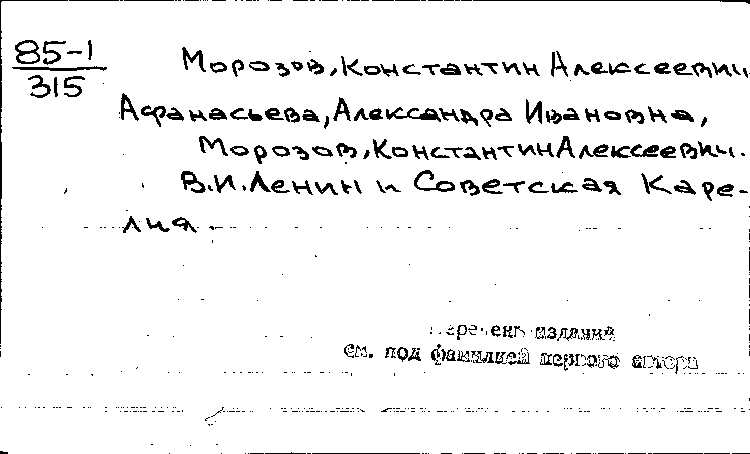 85-1
315
Морозов, Константин Алексеевич
Афанасьева, Александра Ивановна,
Морозов, Константин Алексеевич.
В.И. Ленин и Советская Каре-
лия.
Перечень изданий
см. под фамилией первого автора